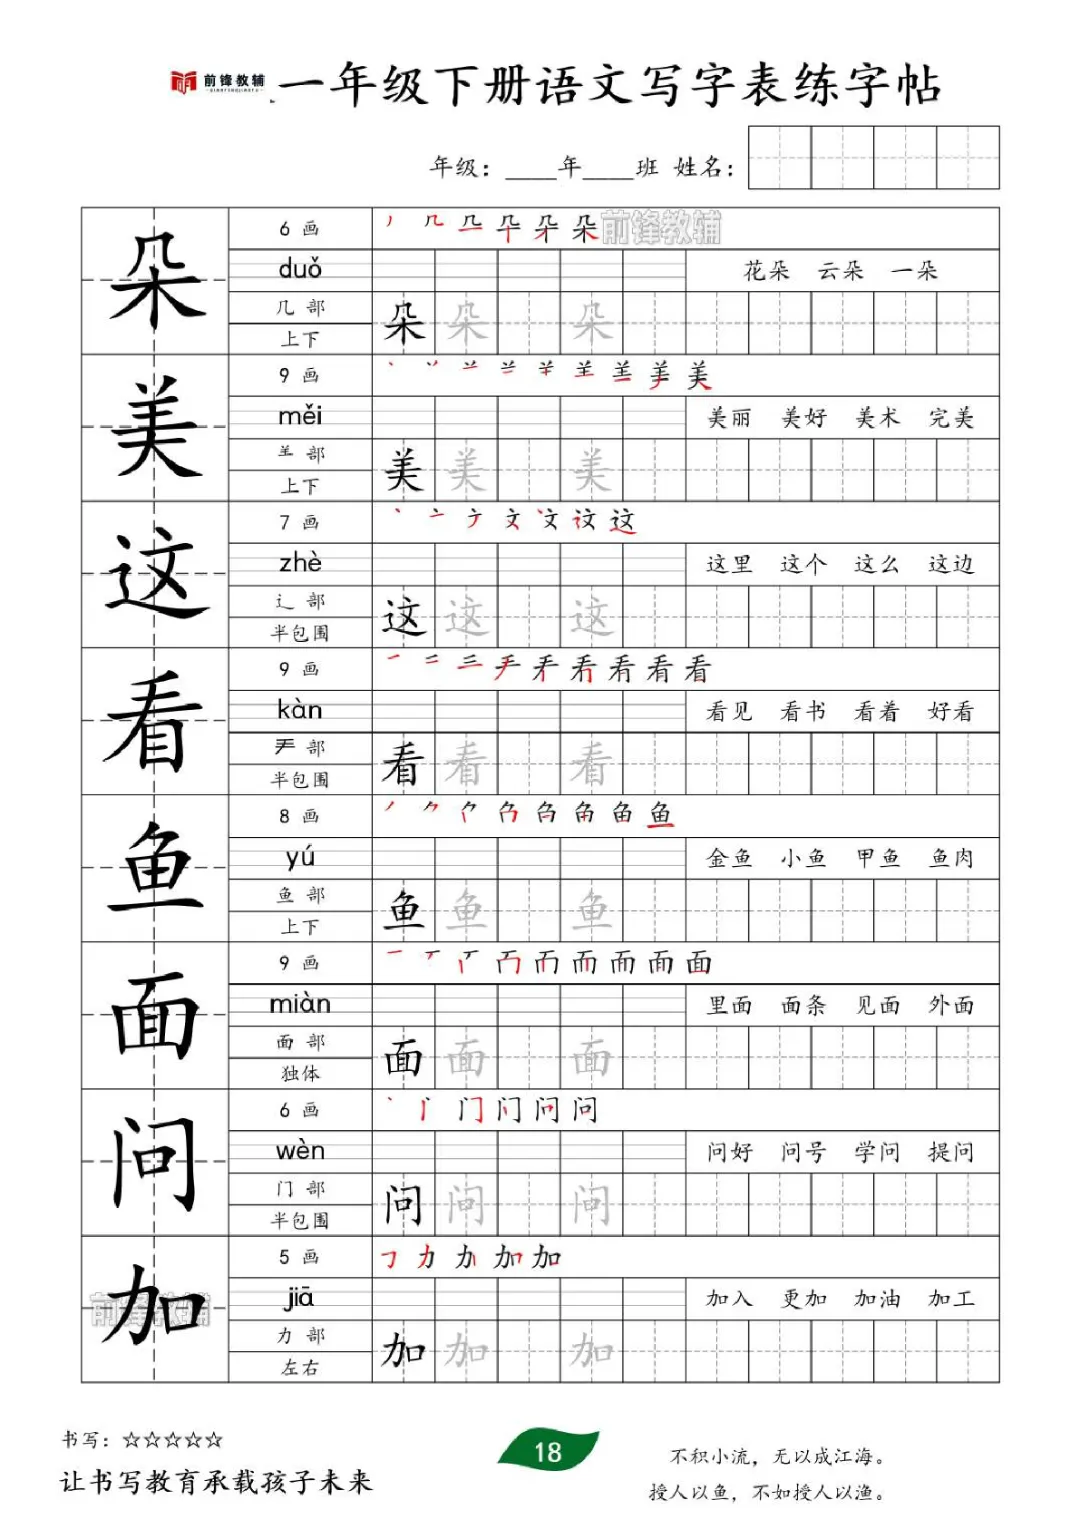 前锋教辅
QIANFENGJIAOFU
一年级下册语文写字表练字帖
年级：____年____班 姓名：
朵
6 画
丿 几 朵 前锋教辅
duǒ
花朵 云朵 一朵
几 部
朵 朵 朵
上下
美
9 画
美
měi
美丽 美好 美术 完美
部
美 美 美
上下
这
7 画
丶 亠 文 这
zhè
这里 这个 这么 这边
辶 部
这 这 这
半包围
看
9 画
一 二 三 看
kàn
看见 看书 看着 好看
部
看 看 看
半包围
鱼
8 画
丿 鱼
yú
金鱼 小鱼 甲鱼 鱼肉
鱼 部
鱼 鱼 鱼
上下
面
9 画
一 面
miàn
里面 面条 见面 外面
面 部
面 面 面
独体
问
6 画
丶 门 问
wèn
问好 问号 学问 提问
门 部
问 问 问
半包围
加
前锋教辅
5 画
力 加
jiā
加入 更加 加油 加工
力 部
加 加 加
左右
书写：☆☆☆☆☆
让书写教育承载孩子未来
18
不积小流，无以成江海。
授人以鱼，不如授人以渔。